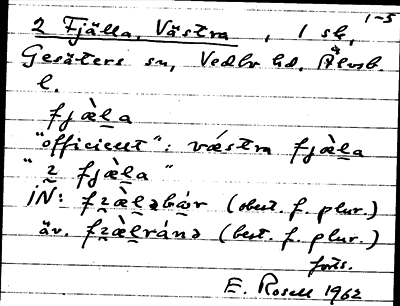 1-5
2 Fjälla, Västra, 1 sk,
Gesäters sn, Vedbo hd, Älvsb.
l.
fjæ̀l̲a
"officiellt": vǽstra fjæ̀l̲a
"2 fjæ̀l̲a"
iN: fjæ̀l̲abor (obest. f. plur.)
äv. fjæ̀l̲ránə (best. f. plur.)
forts.
E. Rosell 1962